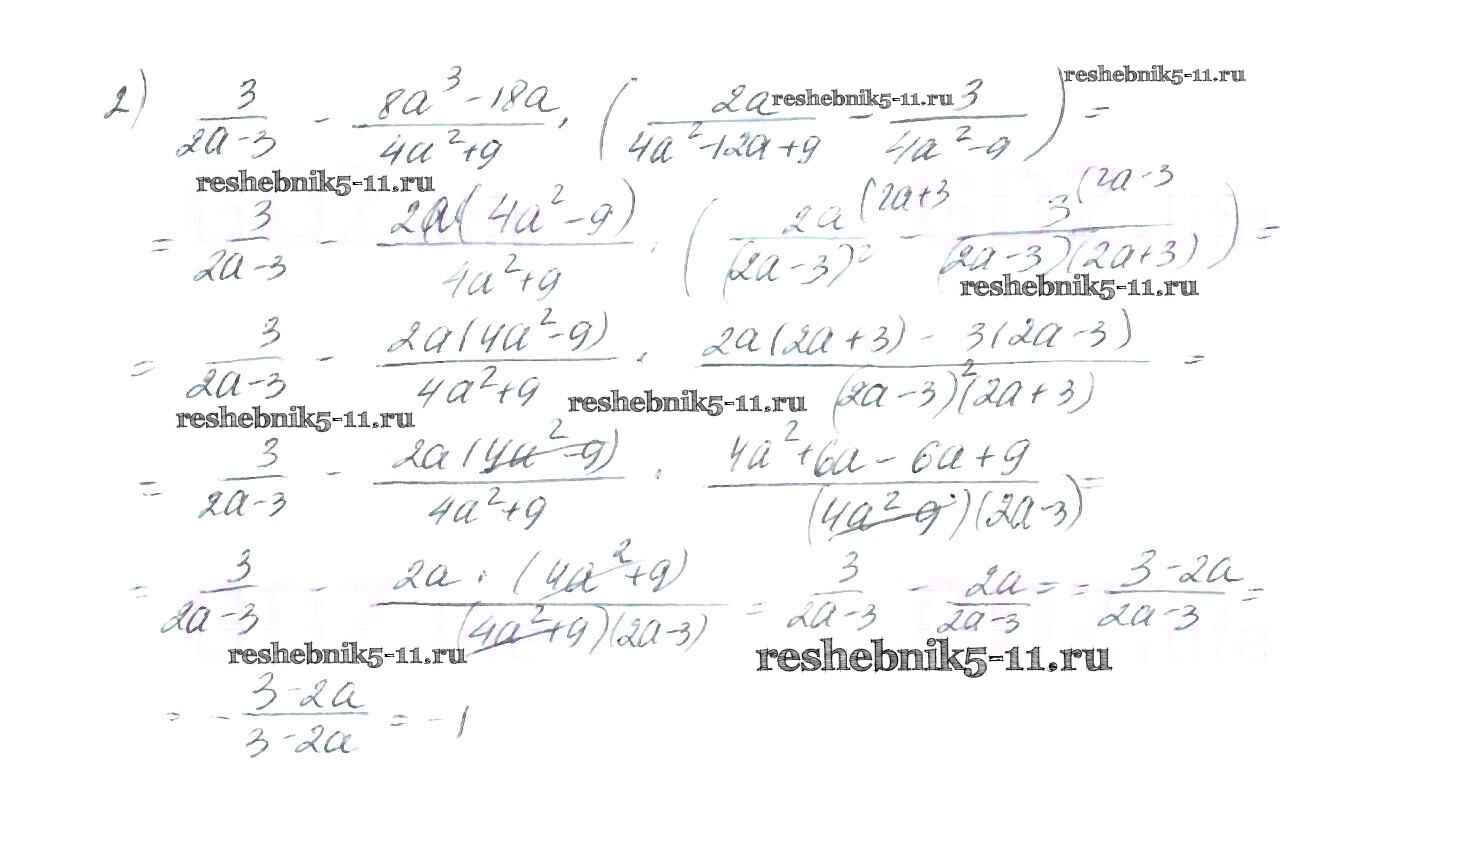 2) 3/(2a-3) - (8a³-18a)/(4a²+9) · (2a/(4a²-12a+9) - 3/(4a²-9)) =
reshebnik5-11.ru
reshebnik5-11.ru
reshebnik5-11.ru
= 3/(2a-3) - 2a(4a²-9)/(4a²+9) · (2a^(2a+3/(2a-3)² - 3^(2a-3/(2a-3)(2a+3)) =
reshebnik5-11.ru
= 3/(2a-3) - 2a(4a²-9)/(4a²+9) · (2a(2a+3) - 3(2a-3))/((2a-3)²(2a+3)) =
reshebnik5-11.ru
reshebnik5-11.ru
= 3/(2a-3) - 2a(4a²-9)/(4a²+9) · (4a²+6a-6a+9)/((4a²-9)(2a-3)) =
= 3/(2a-3) - 2a·(4a²+9)/((4a²+9)(2a-3)) = 3/(2a-3) - 2a/(2a-3) = = (3-2a)/(2a-3) =
reshebnik5-11.ru
reshebnik5-11.ru
= - (3-2a)/(3-2a) = -1